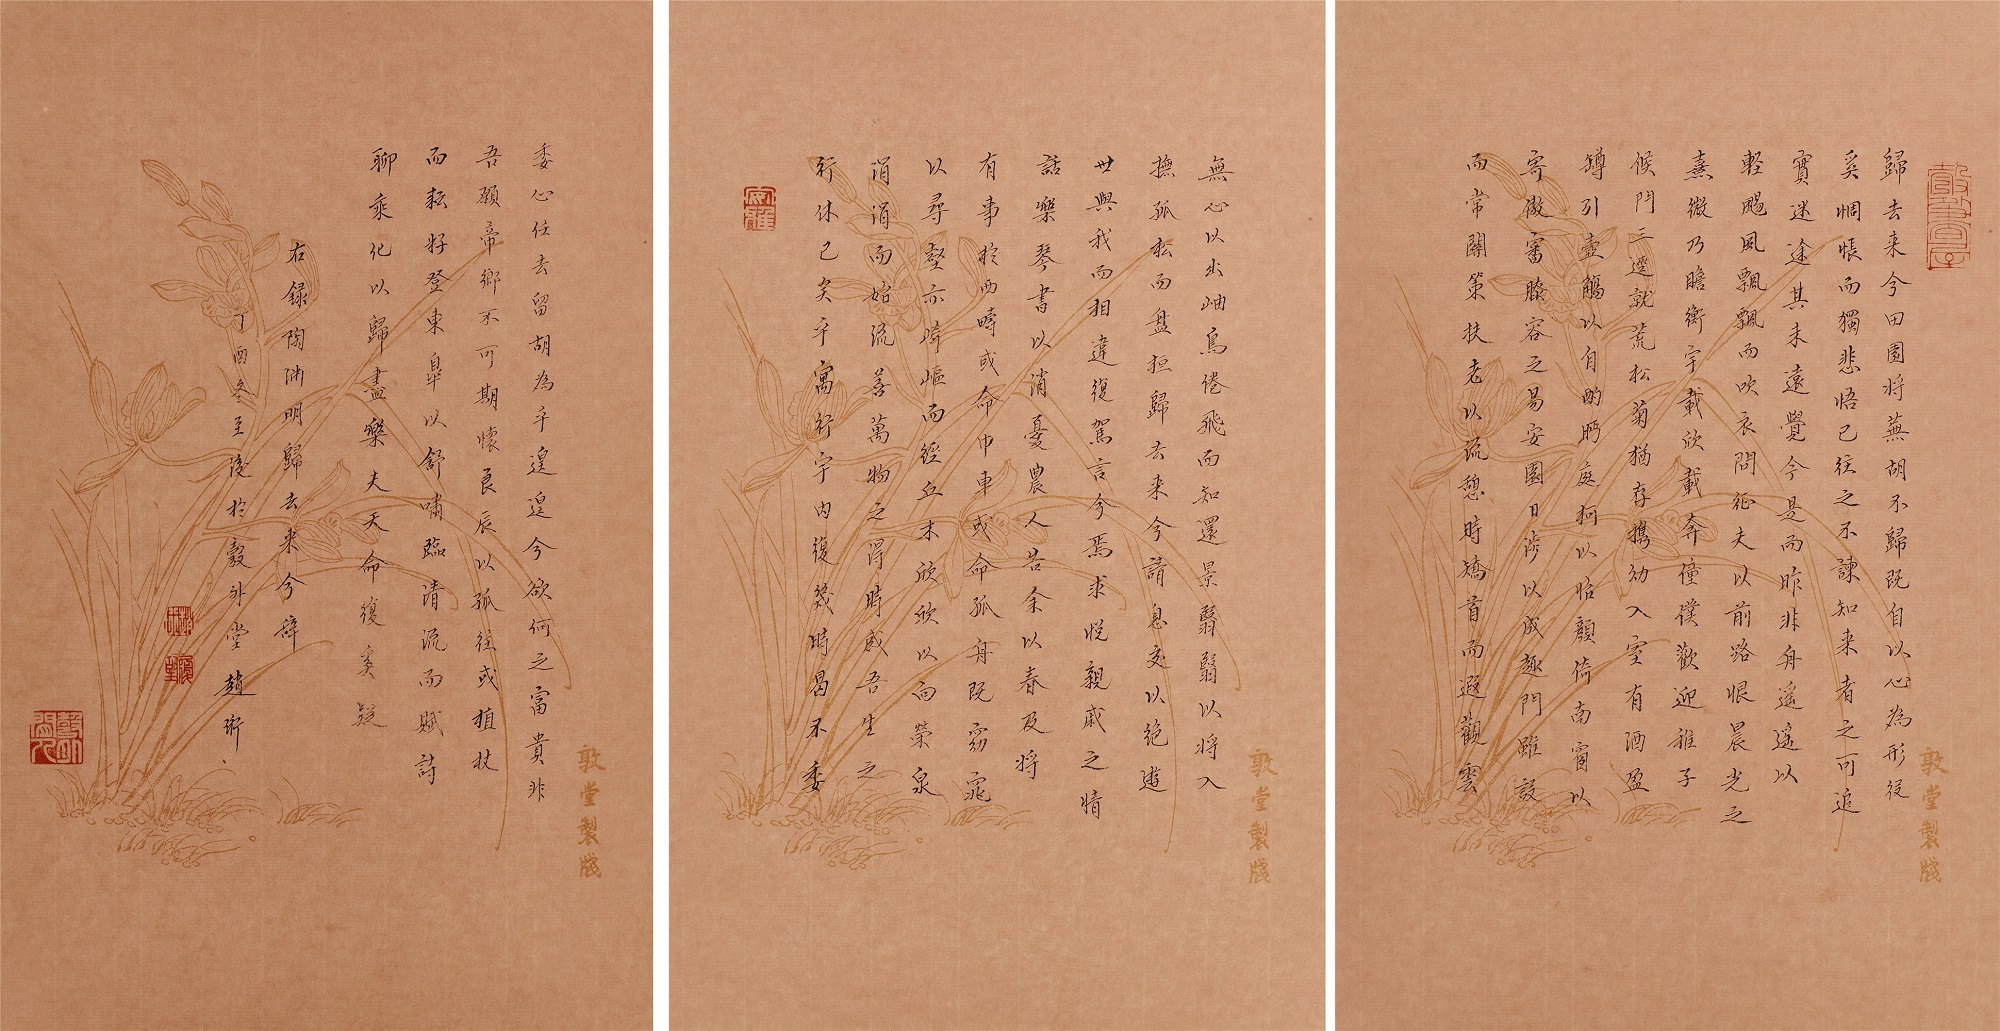 歸去来兮田園将蕪胡不歸既自以心為形役
奚惆悵而獨悲悟已往之不諫知来者之可追
實迷途其未遠覺今是而昨非舟遙遙以
軽颺風飄飄而吹衣問征夫以前路恨晨光之
熹微乃瞻衡宇載欣載奔僮僕歡迎稚子
候門三逕就荒松菊猶存携幼入室有酒盈
罇引壺觴以自酌眄庭柯以怡顏倚南窗以
寄傲審膝容之易安園日涉以成趣門雖設
而常關策扶老以流憩時矯首而遐觀雲
敦堂製牋
無心以出岫鳥倦飛而知還景翳翳以将入
撫孤松而盘桓歸去来兮請息交以絕遊
世與我而相違復駕言兮焉求悅親戚之情
話樂琴書以消憂農人告余以春及将
有事於西疇或命巾車或命孤舟既窈窕
以尋壑亦崎嶇而經丘木欣欣以向榮泉
涓涓而始流善萬物之得時感吾生之
行休已矣乎寓行宇内復幾時曷不委
敦堂製牋
委心任去留胡為乎遑遑兮欲何之富貴非
吾願帝鄉不可期懷良辰以孤往或植杖
而耘好登東皋以舒嘯臨清流而賦詩
聊乘化以歸盡樂夫天命復奚疑
右錄陶渊明歸去来兮辞
丁酉冬至後於縠外堂趙珩
敦堂製牋